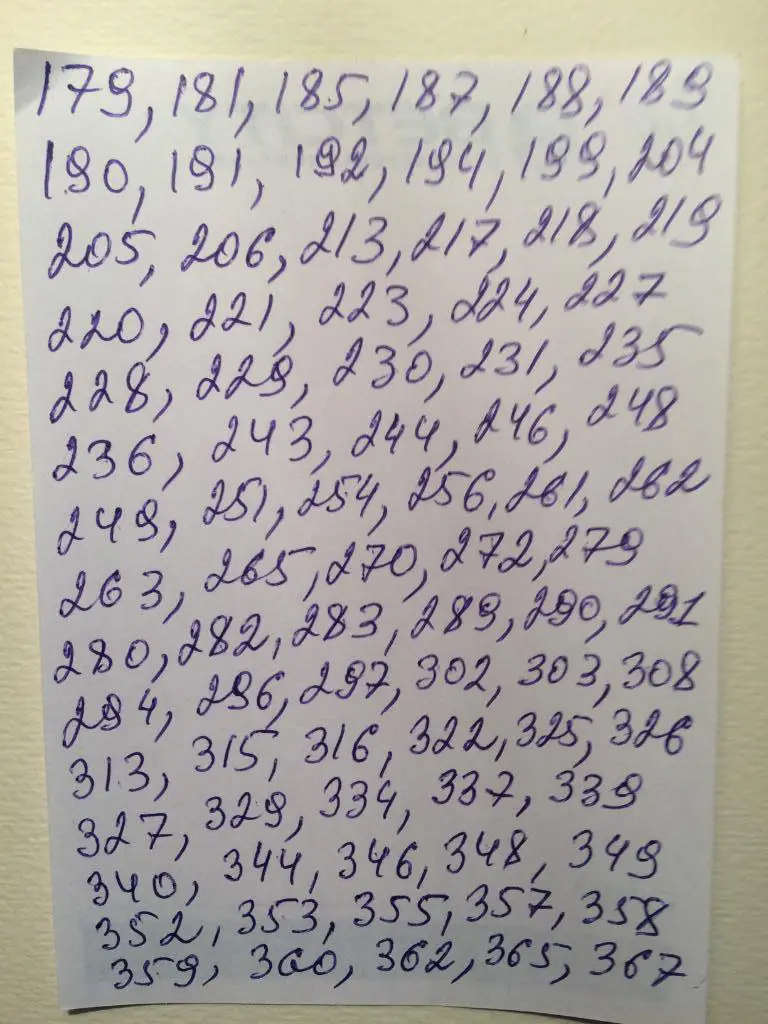 179, 181, 185, 187, 188, 189
190, 191, 192, 194, 199, 204
205, 206, 213, 217, 218, 219
220, 221, 223, 224, 227
228, 229, 230, 231, 235
236, 243, 244, 246, 248
249, 251, 254, 256, 261, 262
263, 265, 270, 272, 279
280, 282, 283, 289, 290, 291
294, 296, 297, 302, 303, 308
313, 315, 316, 322, 325, 326
327, 329, 334, 337, 339
340, 344, 346, 348, 349
352, 353, 355, 357, 358
359, 360, 362, 365, 367